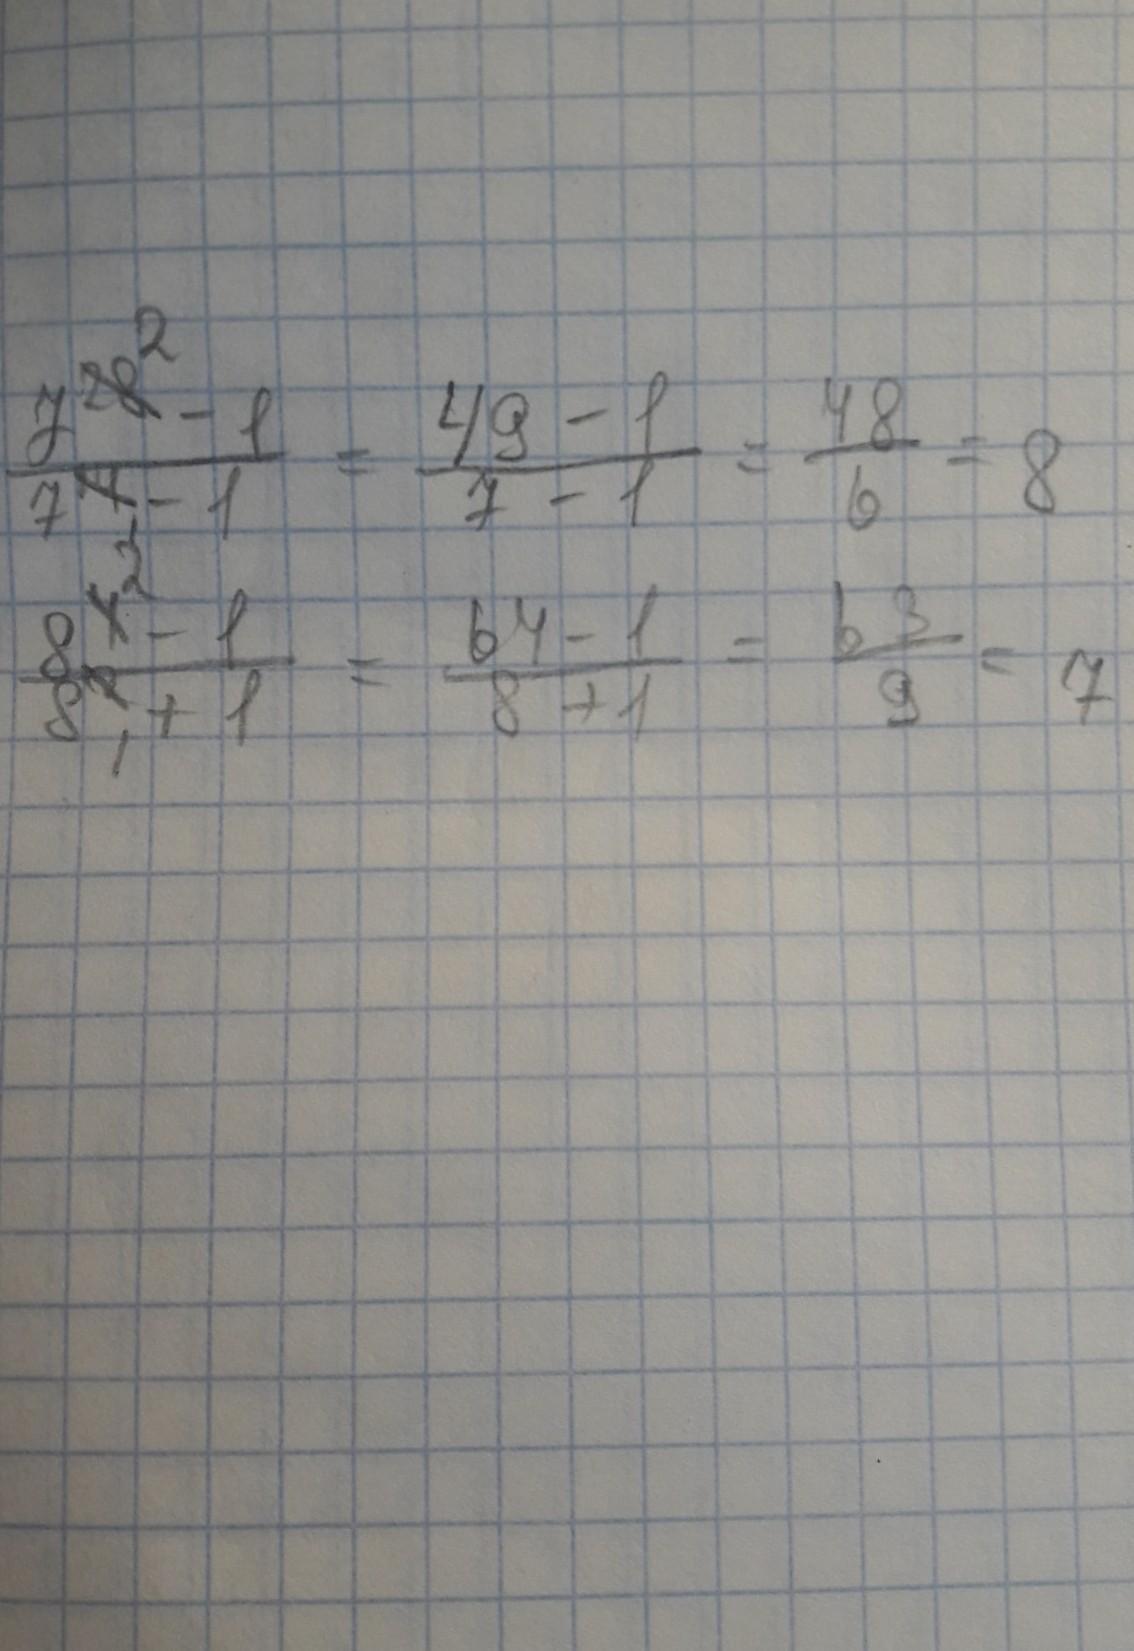 7^28 2 - 1 / 7^4 1 - 1 = 49 - 1 / 7 - 1 = 48 / 6 = 8
8^4 2 - 1 / 8^2 1 + 1 = 64 - 1 / 8 + 1 = 63 / 9 = 7